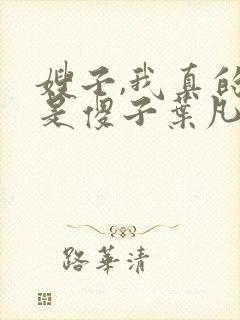 嫂子,我真的
是傻子葉凡
路華清